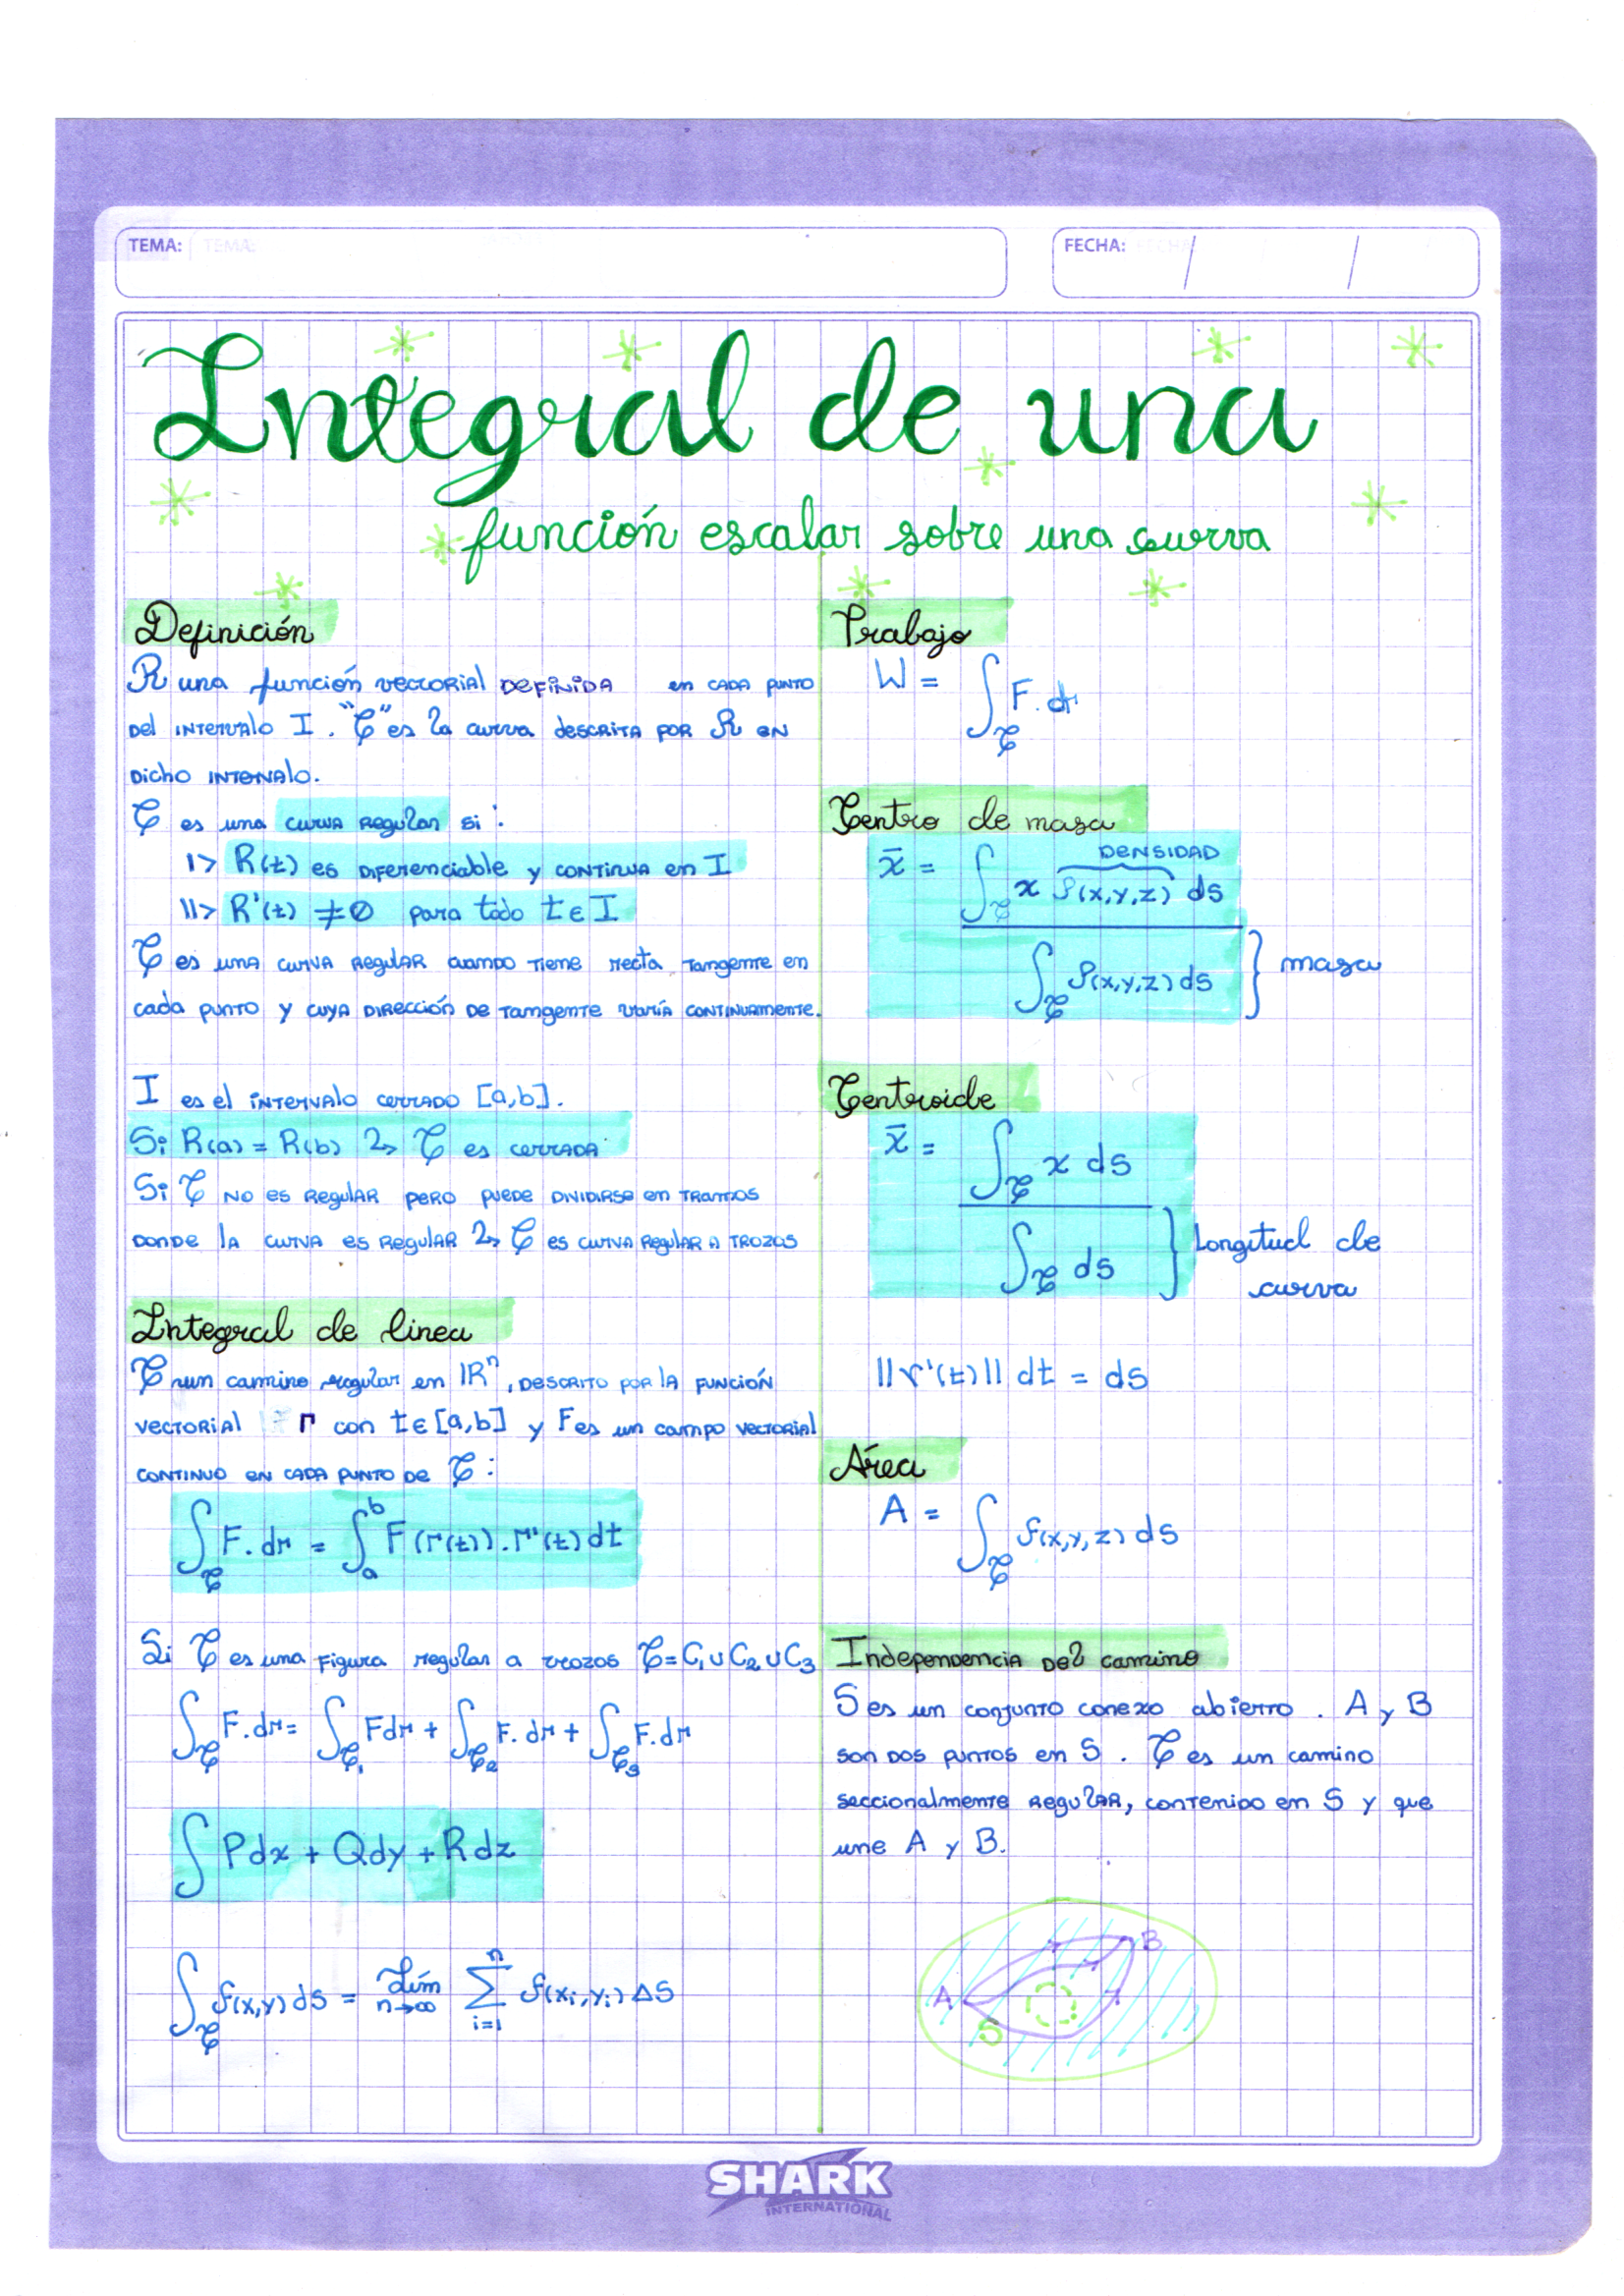 TEMA: TEMA:
FECHA: / /
Integral de una
función escalar sobre una curva
Definición
R una función vectorial DEFINIDA en cada punto
del intervalo I. "C" es la curva descrita por R en
dicho intervalo.
C es una curva regular si:
I> R(t) es diferenciable y continua en I
II> R'(t) ≠ 0 para todo t ∈ I
C es una curva regular cuando tiene recta tangente en
cada punto y cuya dirección de tangente varía continuamente.
I es el intervalo cerrado [a,b].
Si R(a) = R(b) => C es cerrada
Si C no es regular pero puede dividirse en tramos
donde la curva es regular => C es curva regular a trozos
Integral de linea
C un camino regular en IRⁿ, descrito por la función
vectorial r con t ∈ [a,b] y F es un campo vectorial
continuo en cada punto de C:
∫_C F. dr = ∫_a^b F(r(t)). r'(t) dt
Si C es una figura regular a trozos C = C₁ ∪ C₂ ∪ C₃
∫_C F. dr = ∫_C₁ F dr + ∫_C₂ F. dr + ∫_C₃ F. dr
∫ Pdx + Qdy + Rdz
∫_C f(x,y) ds = Lím n→∞ Σ i=1 n f(xi, yi) ΔS
Trabajo
W = ∫_C F. dr
Centro de masa
DENSIDAD
x̄ = ∫_C x ρ(x,y,z) ds
∫_C ρ(x,y,z) ds } masa
Centroide
x̄ = ∫_C x ds
∫_C ds } Longitud de
curva
||r'(t)|| dt = ds
Área
A = ∫_C f(x,y,z) ds
Independencia del camino
S es un conjunto conexo abierto. A y B
son dos puntos en S. C es un camino
seccionalmente regular, contenido en S y que
une A y B.
B
A
S
SHARK
INTERNATIONAL